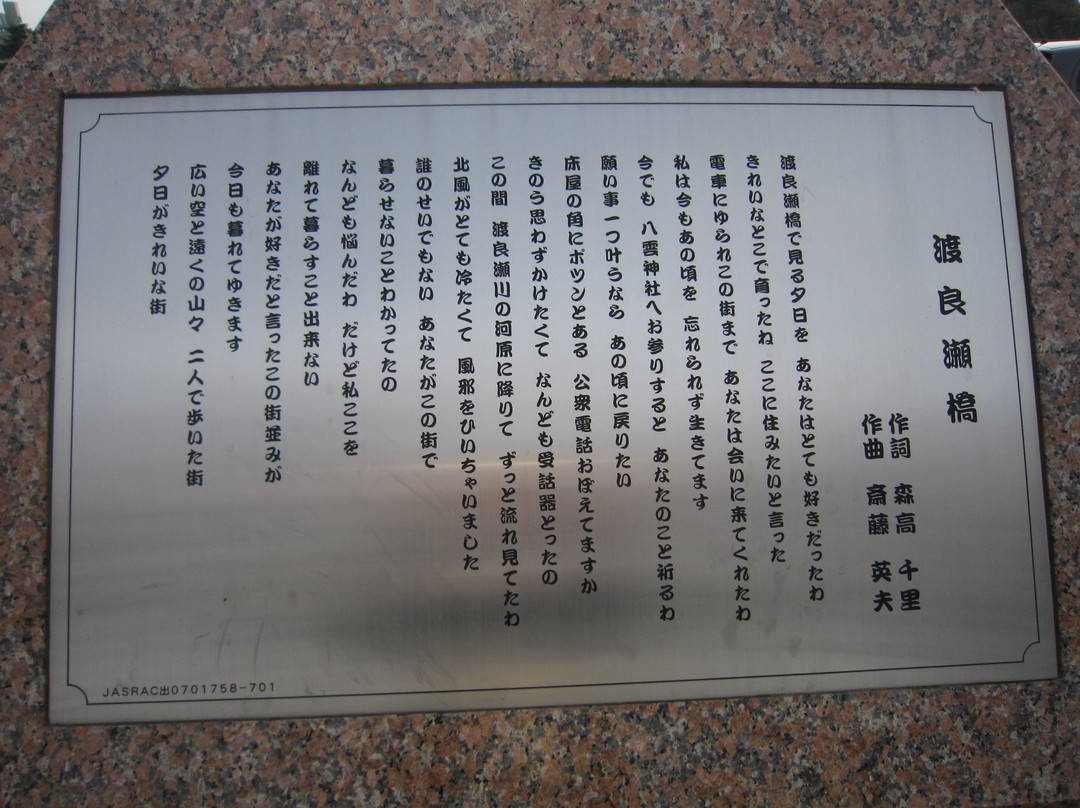 渡良瀬橋
作詞 森高 千里
作曲 斎藤 英夫
渡良瀬橋で見る夕日を あなたはとても好きだったわ
きれいなとこで育ったね ここに住みたいと言った
電車にゆられこの街まで あなたは会いに来てくれたわ
私は今もあの頃を 忘れられず生きてます
今でも 八雲神社へお参りすると あなたのこと祈るわ
願い事一つ叶うなら あの頃に戻りたい
床屋の角にポツンとある 公衆電話おぼえてますか
きのう思わずかけたくて なんども受話器とったの
この間 渡良瀬川の河原に降りて ずっと流れ見てたわ
北風がとても冷たくて 風邪をひいちゃいました
誰のせいでもない あなたがこの街で
暮らせないことわかってたの
なんども悩んだわ だけど私ここを
離れて暮らすこと出来ない
あなたが好きだと言ったこの街並みが
今日も暮れてゆきます
広い空と遠くの山々 二人で歩いた街
夕日がきれいな街
JASRAC出0701758-701